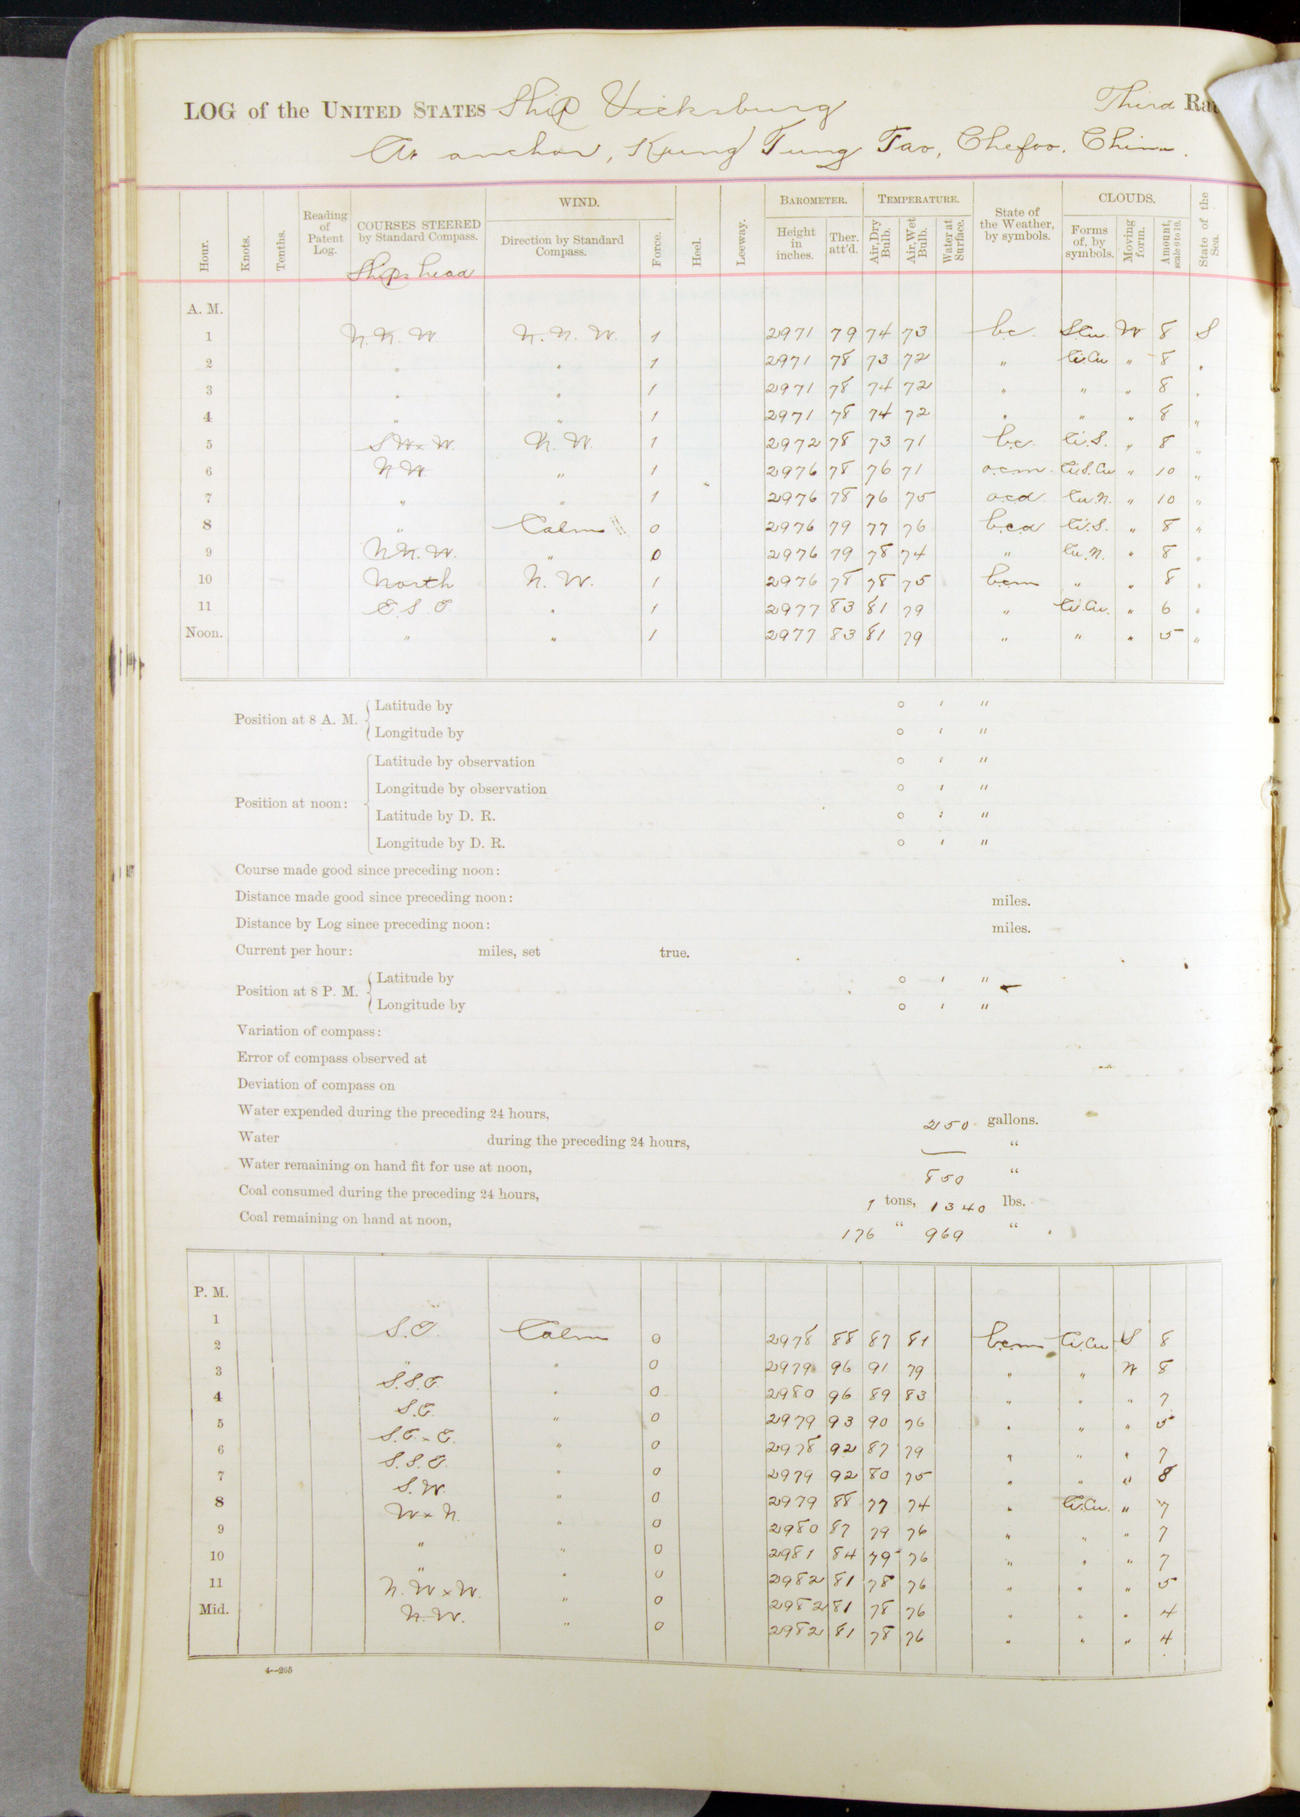 LOG of the UNITED STATES Ship Vicksburg Third Ra
At anchor, Kung Tung Tao, Chefoo, China.
Hour. Knots. Tenths. Reading of Patent Log. COURSES STEERED by Standard Compass. WIND. Direction by Standard Compass. Force. Heel. Leeway. BAROMETER. Height in inches. Ther. att'd. TEMPERATURE. Air, Dry Bulb. Air, Wet Bulb. Water at Surface. State of the Weather, by symbols. CLOUDS. Forms of, by symbols. Moving form. Amount, scale 0 to 10. State of the Sea.
Ships head
A. M.
1 N.N.W N.N.W. 1 2971 79 74 73 b.c. S.Cu. W 8 S
2 " " 1 2971 78 73 72 " Ci.Cu " 8 "
3 " " 1 2971 78 74 72 " " " 8 "
4 " " 1 2971 78 74 72 " " " 8 "
5 S.W.xW. N.W. 1 2972 78 73 71 b.c. Ci.S. " 8 "
6 N.W. " 1 2976 78 76 71 o.c.m. Ci.S.Cu " 10 "
7 " " 1 2976 78 76 75 o.c.d. Cu.N. " 10 "
8 " Calm 0 2976 79 77 76 b.c.d Ci.S. " 8 "
9 N.N.W. " 0 2976 79 78 74 " Cu.N. " 8 "
10 North N.W. 1 2976 78 78 75 b.c.m " " 8 "
11 E.S.E " 1 2977 83 81 79 " Ci.Cu. " 6 "
Noon. " " 1 2977 83 81 79 " " " 5 "
Position at 8 A. M. Latitude by ° ' "
Longitude by ° ' "
Position at noon: Latitude by observation ° ' "
Longitude by observation ° ' "
Latitude by D. R. ° ' "
Longitude by D. R. ° ' "
Course made good since preceding noon:
Distance made good since preceding noon: miles.
Distance by Log since preceding noon: miles.
Current per hour: miles, set true.
Position at 8 P. M. Latitude by ° ' "
Longitude by ° ' "
Variation of compass:
Error of compass observed at
Deviation of compass on
Water expended during the preceding 24 hours, 250 gallons.
Water during the preceding 24 hours, — "
Water remaining on hand fit for use at noon, 850 "
Coal consumed during the preceding 24 hours, 1 tons, 1340 lbs.
Coal remaining on hand at noon, 176 " 969 "
P. M.
1 S.E. Calm 0 2978 88 87 81 b.c.m Ci.Cu S 8
2 " " 0 2979 96 91 79 " " W 8
3 S.S.E. " 0 2980 96 89 83 " " " 7
4 S.E. " 0 2979 93 90 76 " " " 5
5 S.E.xE. " 0 2978 92 87 79 " " " 7
6 S.S.E. " 0 2979 92 80 75 " " " 8
7 S.W. " 0 2979 88 77 74 " Ci.Cu. " 7
8 WxN. " 0 2980 87 79 76 " " " 7
9 " " 0 2981 84 79 76 " " " 7
10 " " 0 2982 81 78 76 " " " 5
11 N.WxW. " 0 2982 81 78 76 " " " 4
Mid. N.W. " 0 2982 81 78 76 " " " 4
4—205